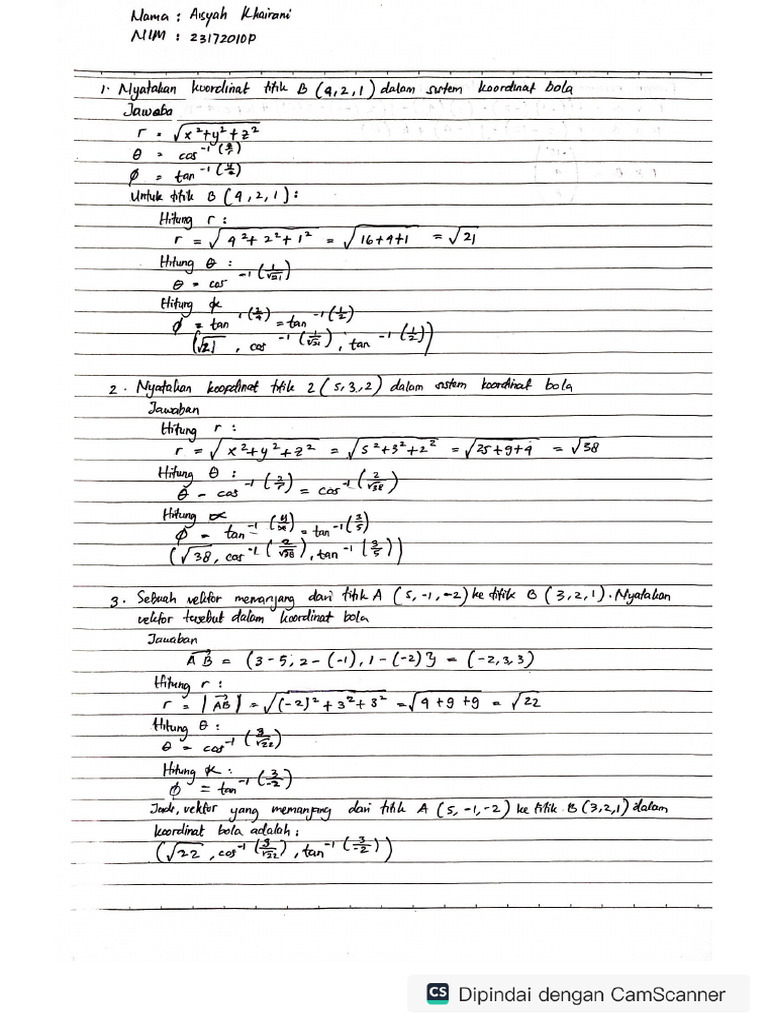 Nama : Aisyah Khairani
NIM : 23172010P
1. Nyatakan koordinat titik B (4,2,1) dalam sistem koordinat bola
Jawaba
r = √x²+y²+z²
θ = cos⁻¹(z/r)
ϕ = tan⁻¹(y/x)
Untuk titik B (4,2,1) :
Hitung r :
r = √4²+2²+1² = √16+4+1 = √21
Hitung θ :
θ = cos⁻¹(1/√21)
Hitung ɸ
ϕ = tan⁻¹(2/4) = tan⁻¹(1/2)
(√21, cos⁻¹(1/√21), tan⁻¹(1/2))
2. Nyatakan koordinat titik 2 (5,3,2) dalam sistem koordinat bola
Jawaban
Hitung r :
r = √x²+y²+z² = √5²+3²+2² = √25+9+4 = √38
Hitung θ :
θ = cos⁻¹(z/r) = cos⁻¹(2/√38)
Hitung α
ϕ = tan⁻¹(y/x) = tan⁻¹(3/5)
(√38, cos⁻¹(2/√38), tan⁻¹(3/5))
3. Sebuah vektor memanjang dari titik A (5,-1,-2) ke titik B (3,2,1). Nyatakan
vektor tersebut dalam koordinat bola
Jawaban
AB = (3-5, 2-(-1), 1-(-2)} = (-2,3,3)
Hitung r :
r = |AB| = √(-2)²+3²+3² = √4+9+9 = √22
Hitung θ :
θ = cos⁻¹(3/√22)
Hitung α :
ϕ = tan⁻¹(3/-2)
Jadi, vektor yang memanjang dari titik A (5,-1,-2) ke titik B (3,2,1) dalam
koordinat bola adalah :
(√22, cos⁻¹(3/√22), tan⁻¹(3/-2))
CS Dipindai dengan CamScanner